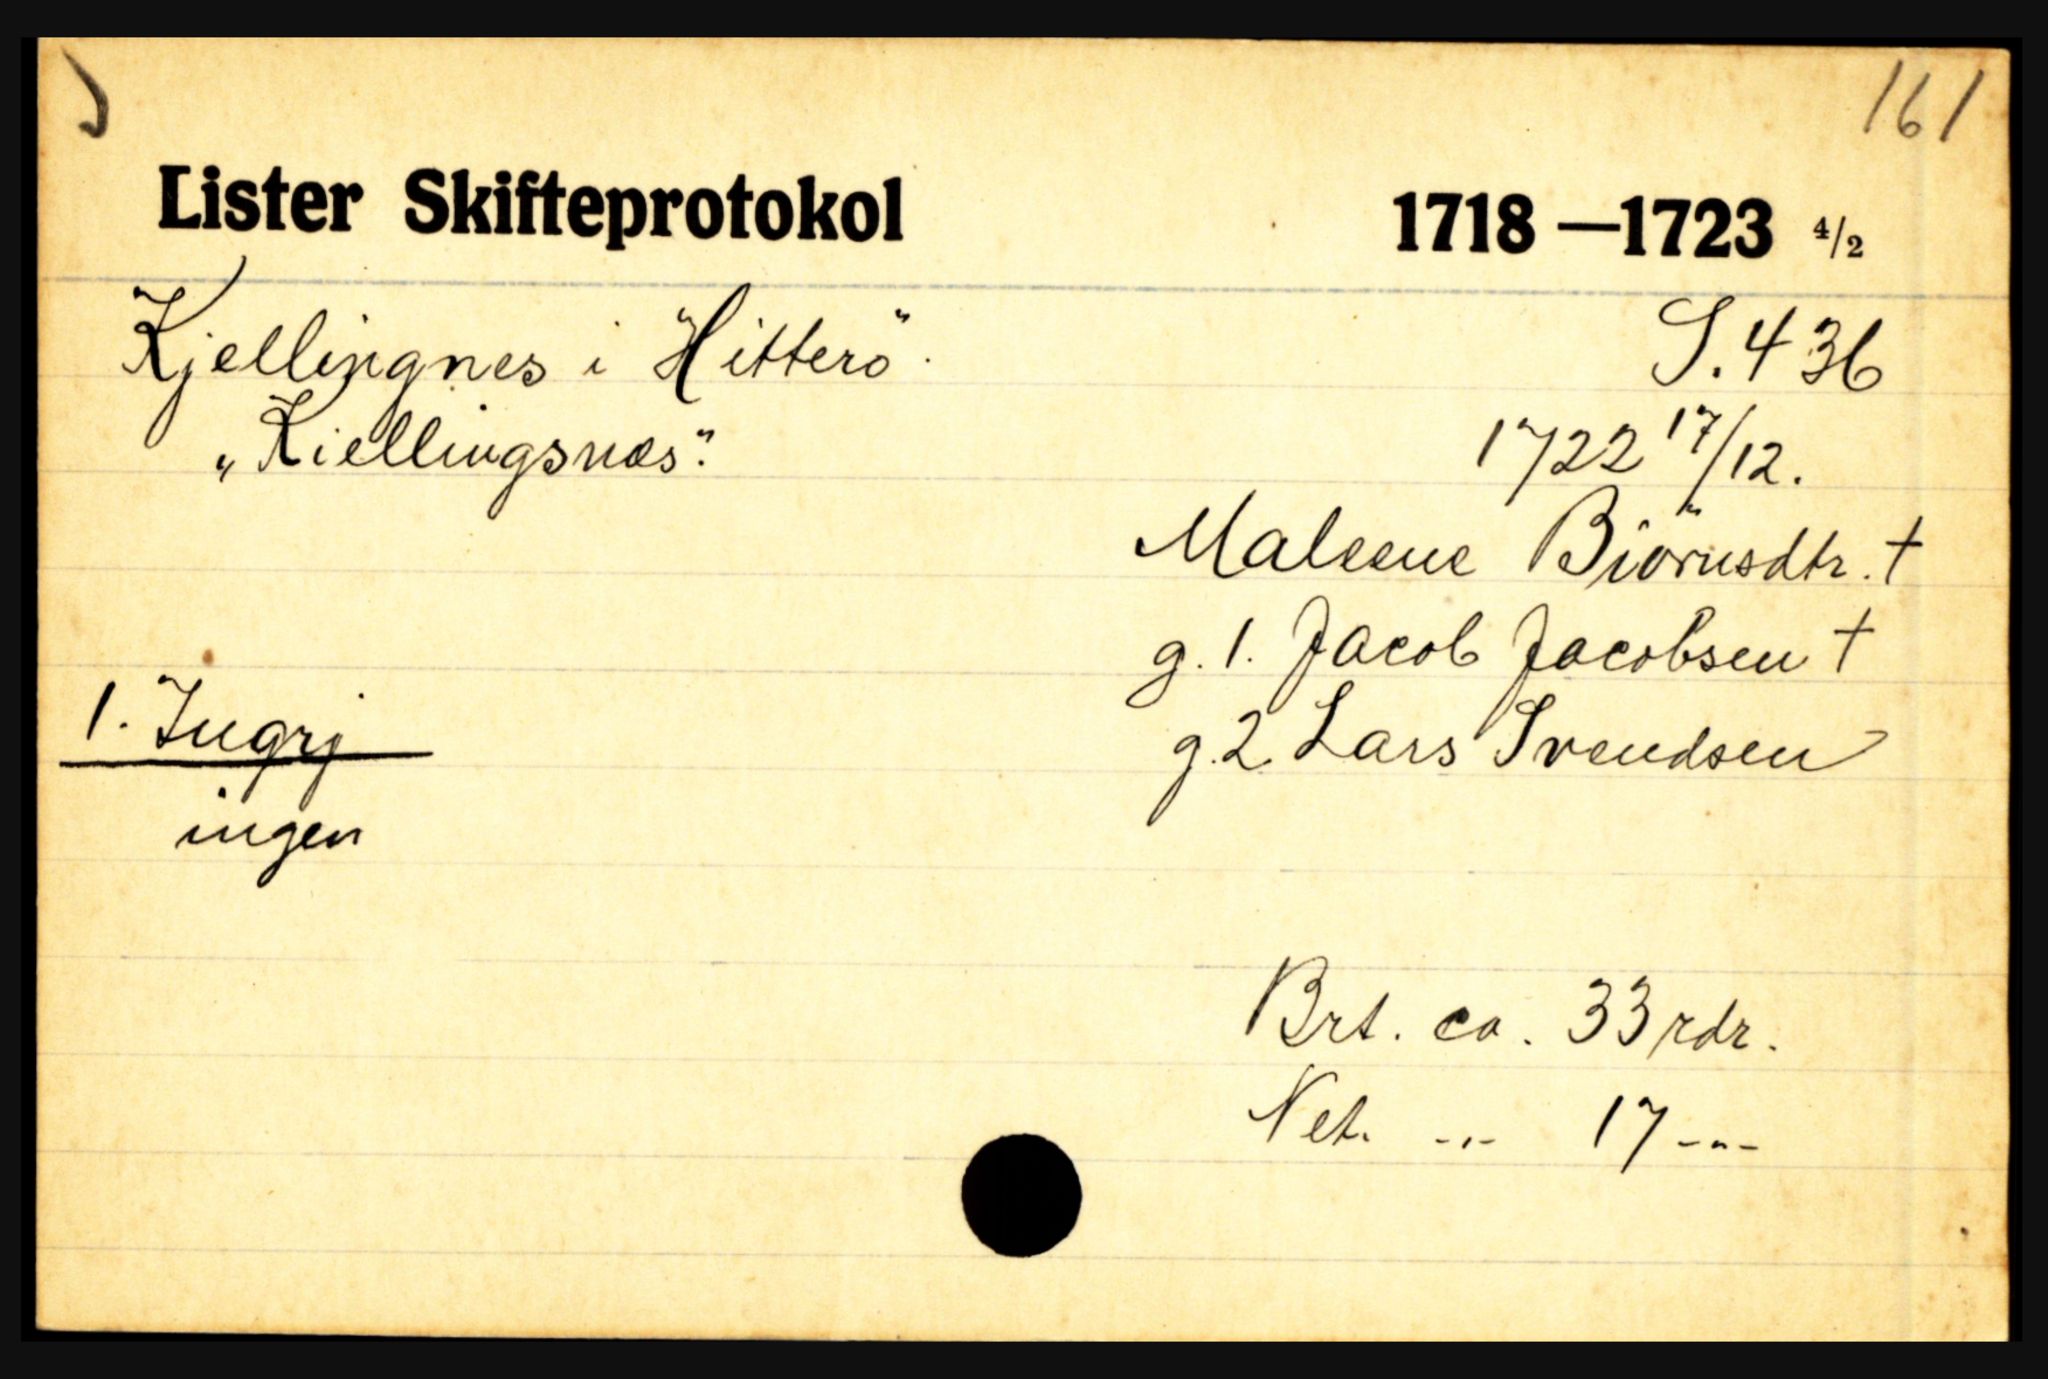 161
Lister Skifteprotokol 1718—1723 4/2
Kjellingnes i "Hitterö". S. 436
„Kiellingsnæs". 1722 17/12.
Maleene Biörnsdtr. †
g. 1. Jacob Jacobsen †
1. Ingrj g. 2 Lars Svendsen
ingen
Brt. ca. 33 rdr.
Net. -„- 17 -„-